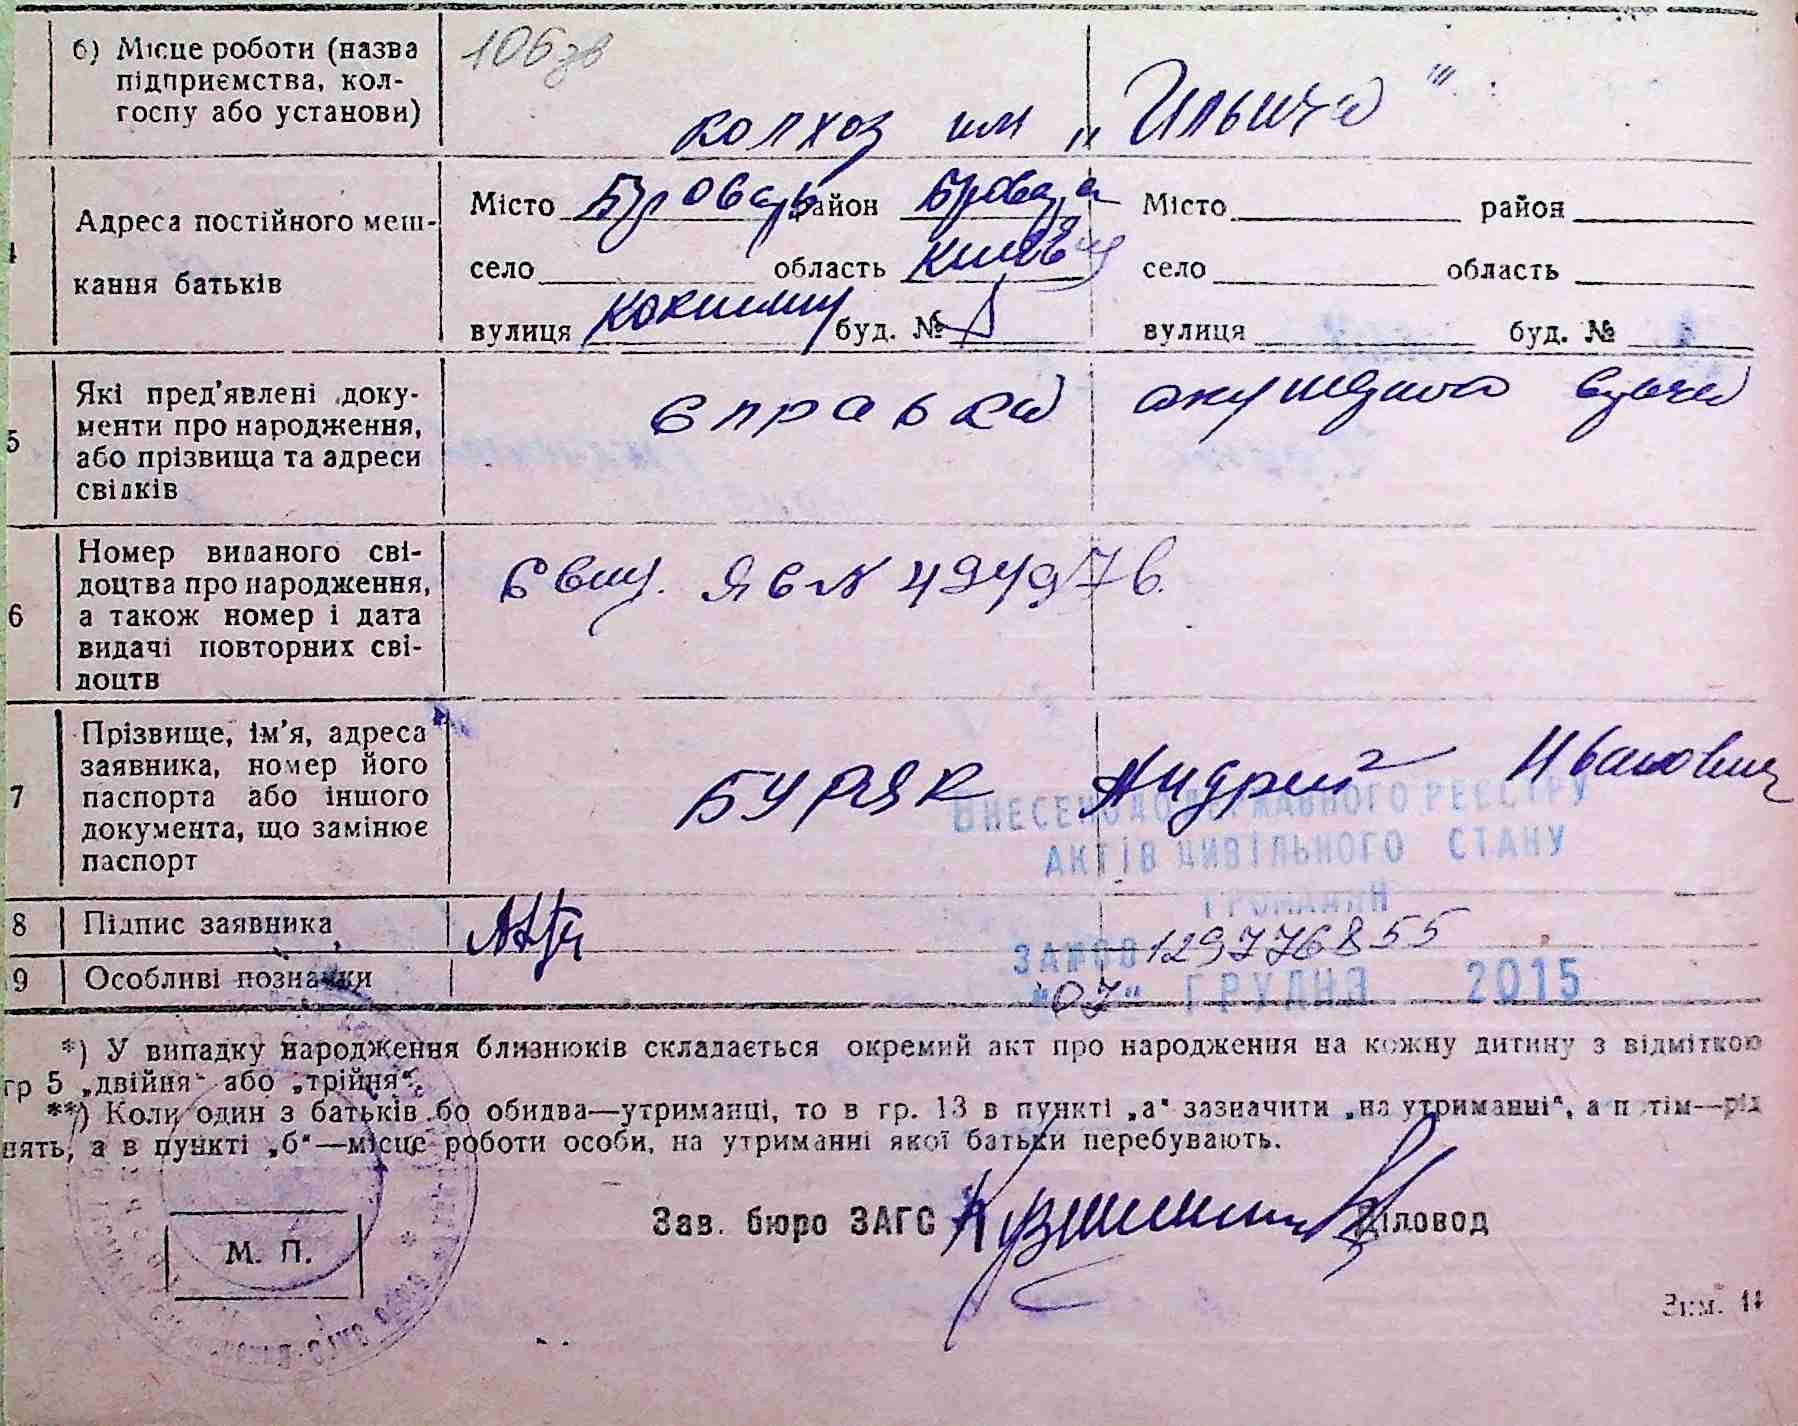 106 зв
б) Місце роботи (назва
підприємства, кол-
госпу або установи)
колхоз им „Ильича"
4
Адреса постійного меш-
кання батьків
Місто Бровары район Бровар
село область Киев
вулиця буд. №
Місто район
село область
вулиця буд. №
5
Які пред'явлені доку-
менти про народження,
або прізвища та адреси
свідків
справка
6
Номер виданого сві-
доцтва про народження,
а також номер і дата
видачі повторних сві-
доцтв
Свид. ЯБ №
7
Прізвище, ім'я, адреса
заявника, номер його
паспорта або іншого
документа, що замінює
паспорт
БУРЯК Андрей Иванович
ВНЕСЕНО ДО ДЕРЖАВНОГО РЕЄСТРУ
АКТІВ ЦИВІЛЬНОГО СТАНУ
ГРОМАДЯН
8 Підпис заявника
129776855
9 Особливі позначки
"07" ГРУДНЯ 2015
*) У випадку народження близнюків складається окремий акт про народження на кожну дитину з відміткою
гр 5 „двійня" або „трійня".
**) Коли один з батьків бо обидва—утриманці, то в гр. 13 в пункті „а" зазначити „на утриманні", а п тім—рід
нять, а в пункті „б"—місце роботи особи, на утриманні якої батьки перебувають.
Зав. бюро ЗАГС Діловод
М. П.